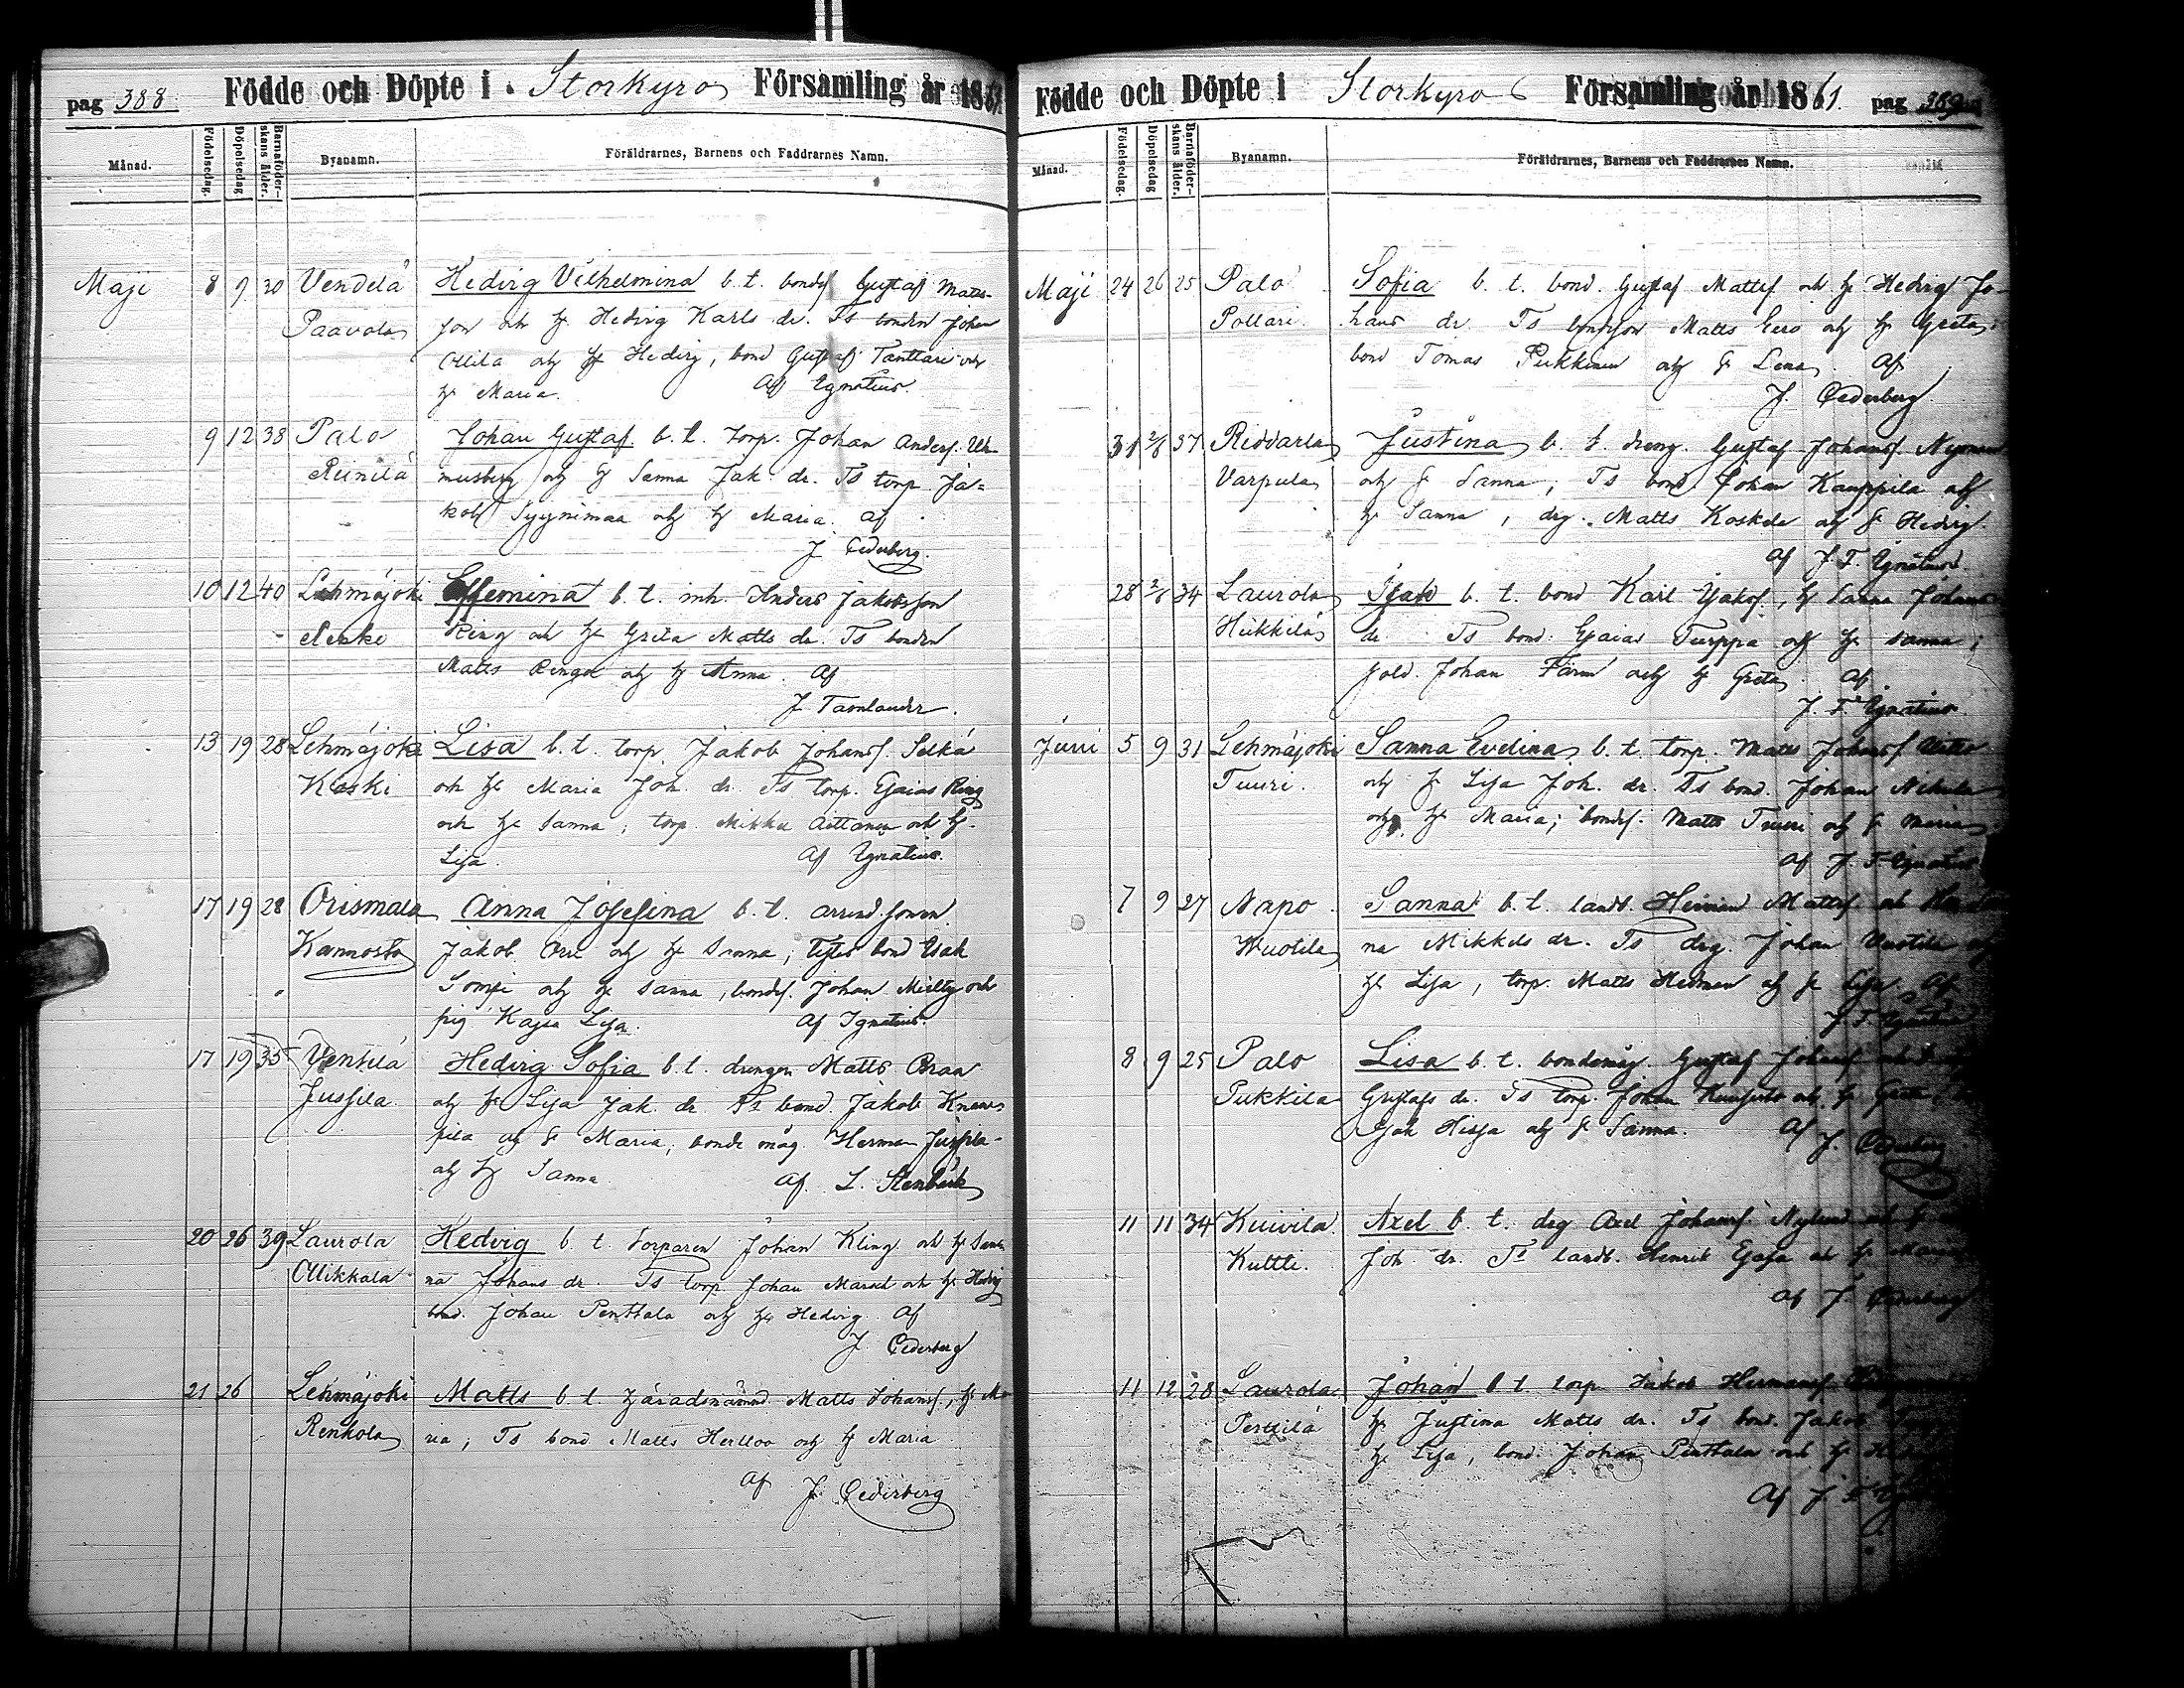 pag 388 Födde och Döpte i Storkyro Församling år 1861
Månad. Födelsedag. Döpelsedag Barnaföder-skans ålder. Byanamn. Föräldrarnes, Barnens och Faddrarnes Namn.
Maji 8 9 30 Vendelä Hedvig Vilhelmina b. t. bondes. Gustaf Matts-
Paavola son och h. Hedvig Karls dr. Ts bonden Johan
Ollila och h Hedvig, bond Gustaf Tanttari och
h. Maria. Af Ignatius.
9 12 38 Palo Johan Gustaf b. t. torp. Johan Anders.
Reinilä och h Sanna Jak. dr. Ts torp. Ja=
kob Syynimaa och h Maria. af
J Cederberg.
10 12 40 Lehmäjoki b. t. inh. Anders Jakobsson
Ring och h. Greta Matts dr. Ts bonden
Matts och h Anna. Af
J Tamlander.
13 19 28 Lehmäjoki Lisa b. t. torp. Jakob Johans. Selkä
Koski och h. Maria Joh. dr. Ts torp. Esaias Ring
och h. Sanna; torp. Mikko Aittanen och h.
Lisa. Af Ignatius.
17 19 28 Orismala Anna Josefina b. t. arrend.
Kannosto Jakob och h. Sanna; Testes bond Isak
Sompi och h. Sanna, bondes. Johan och
pig Kajsa Lisa. Af Ignatius.
17 19 35 Ventilä Hedvig Sofia b. t. drengen Matts Braa
Jussila och h. Lisa Jak. dr. Ts bond. Jakob
pila och h Maria, bonde måg Herman Jussila
och h Sanna Af L. Stenbäck
20 26 39 Laurola Hedvig b. t. torparen Johan Kling och h San-
Mikkala na Johans dr. Ts torp. Johan och h. Hedvig
bond. Johan Penttala och h. Hedvig. Af
J. Cederberg
21 26 Lehmäjoki Matts b. t. häradsnämnd. Matts Johans., h. Ma-
Renkola ria; Ts bond Matts Herttoo och h Maria
Af J. Cederberg
Födde och Döpte i Storkyro Församling år 1861. pag 389
Månad. Födelsedag. Döpelsedag Barnaföder-skans ålder. Byanamn. Föräldrarnes, Barnens och Faddrarnes Namn.
Maji 24 26 25 Palo Sofia b. t. bond. Gustaf Matts. och h. Hedvig Jo-
Pollari hans dr. Ts bondson Matts Eero och h Greta;
bond Tomas Pukkinen och h Lena. Af
J. Cederberg
31 2/6 37 Riddarla Justina b. t. dreng. Gustaf Johans.
Varpula och h Sanna; Ts bond. Johan Kauppila och
h. Sanna, drg. Matts Koskela och h Hedvig.
Af J. F. Ignatius.
28 2/6 34 Laurola Isak b. t. bond Karl Jakobs., h Sanna Johans
Hiikkilä dr. Ts bond. Esaias Turppa och h. Sanna;
sold. Johan Färm och h Greta. af
J. F. Ignatius
Juni 5 9 31 Lehmäjoki Sanna Evelina b. t. torp. Matts Johans.
Tuuri. och h Lisa Joh. dr. Ts bond. Johan Nikula
och h. Maria; bondes. Matts Tuuri och h Maria
af J. F. Ignatius
7 9 27 Napo Sanna b. t. landb. Herman Matts. och
Wuotila na Mikkels dr. Ts drg. Johan Vuotila och
h. Lisa, torp. Matts Hedman och h Lisa Af
J. F. Ignatius
8 9 25 Palo Lisa b. t. bondemåg. Gustaf Johans. och
Pukkila Gustafs dr. Ts torp. Johan och h. Greta;
Isak Hissa och h Sanna. Af J. Cederberg
11 11 34 Kuivila Axel b. t. drg Axel Johans. Nylund och h
Kuttti. Joh. dr. Ts landb. Henrik och h Maria
af J Cederberg
11 12 28 Laurola Johan b. t. torp Jakob Hermans.
Perttilä h. Justina Matts dr. Ts bond. Jakob
h. Lisa, bond. Johan Penttala och h
Af J. F.